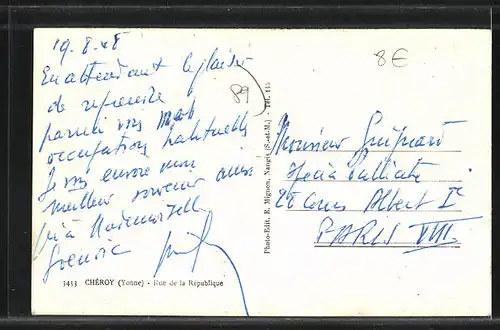 19-8-48
En attendant le plaisir
de reprendre
parmi vous mes
occupations habituelles
Je vous envoie mon
meilleur souvenir ainsi
qu'à Mademoiselle
3433 CHÉROY (Yonne) - Rue de la République
Photo-Edit. E. Mignon, Nangis (S.-et-M.) - Tél. 115
89
8€
Monsieur Guignard
28 Cours Albert Ier
PARIS VIII